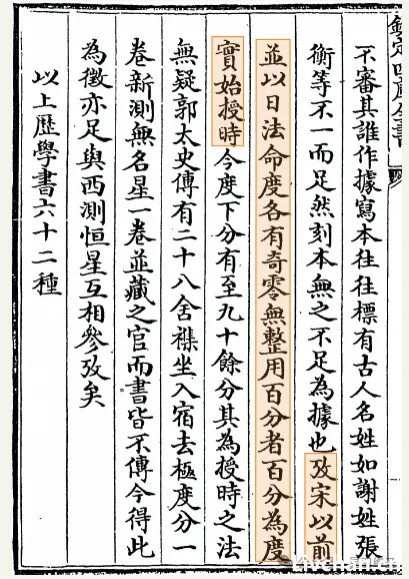 欽定四庫全書
不審其誰作據寫本往往標有古人名姓如謝姓張
衡等不一而足然刻本無之不足為據也攷宋以前
並以日法命度各有奇零無整用百分者百分為度
實始授時今度下分有至九十餘分其為授時之法
無疑郭太史傳有二十八舍襍坐入宿去極度分一
卷新測無名星一卷並藏之官而書皆不傳今得此
為徵亦足與西測恒星互相參攷矣
以上歴學書六十二種